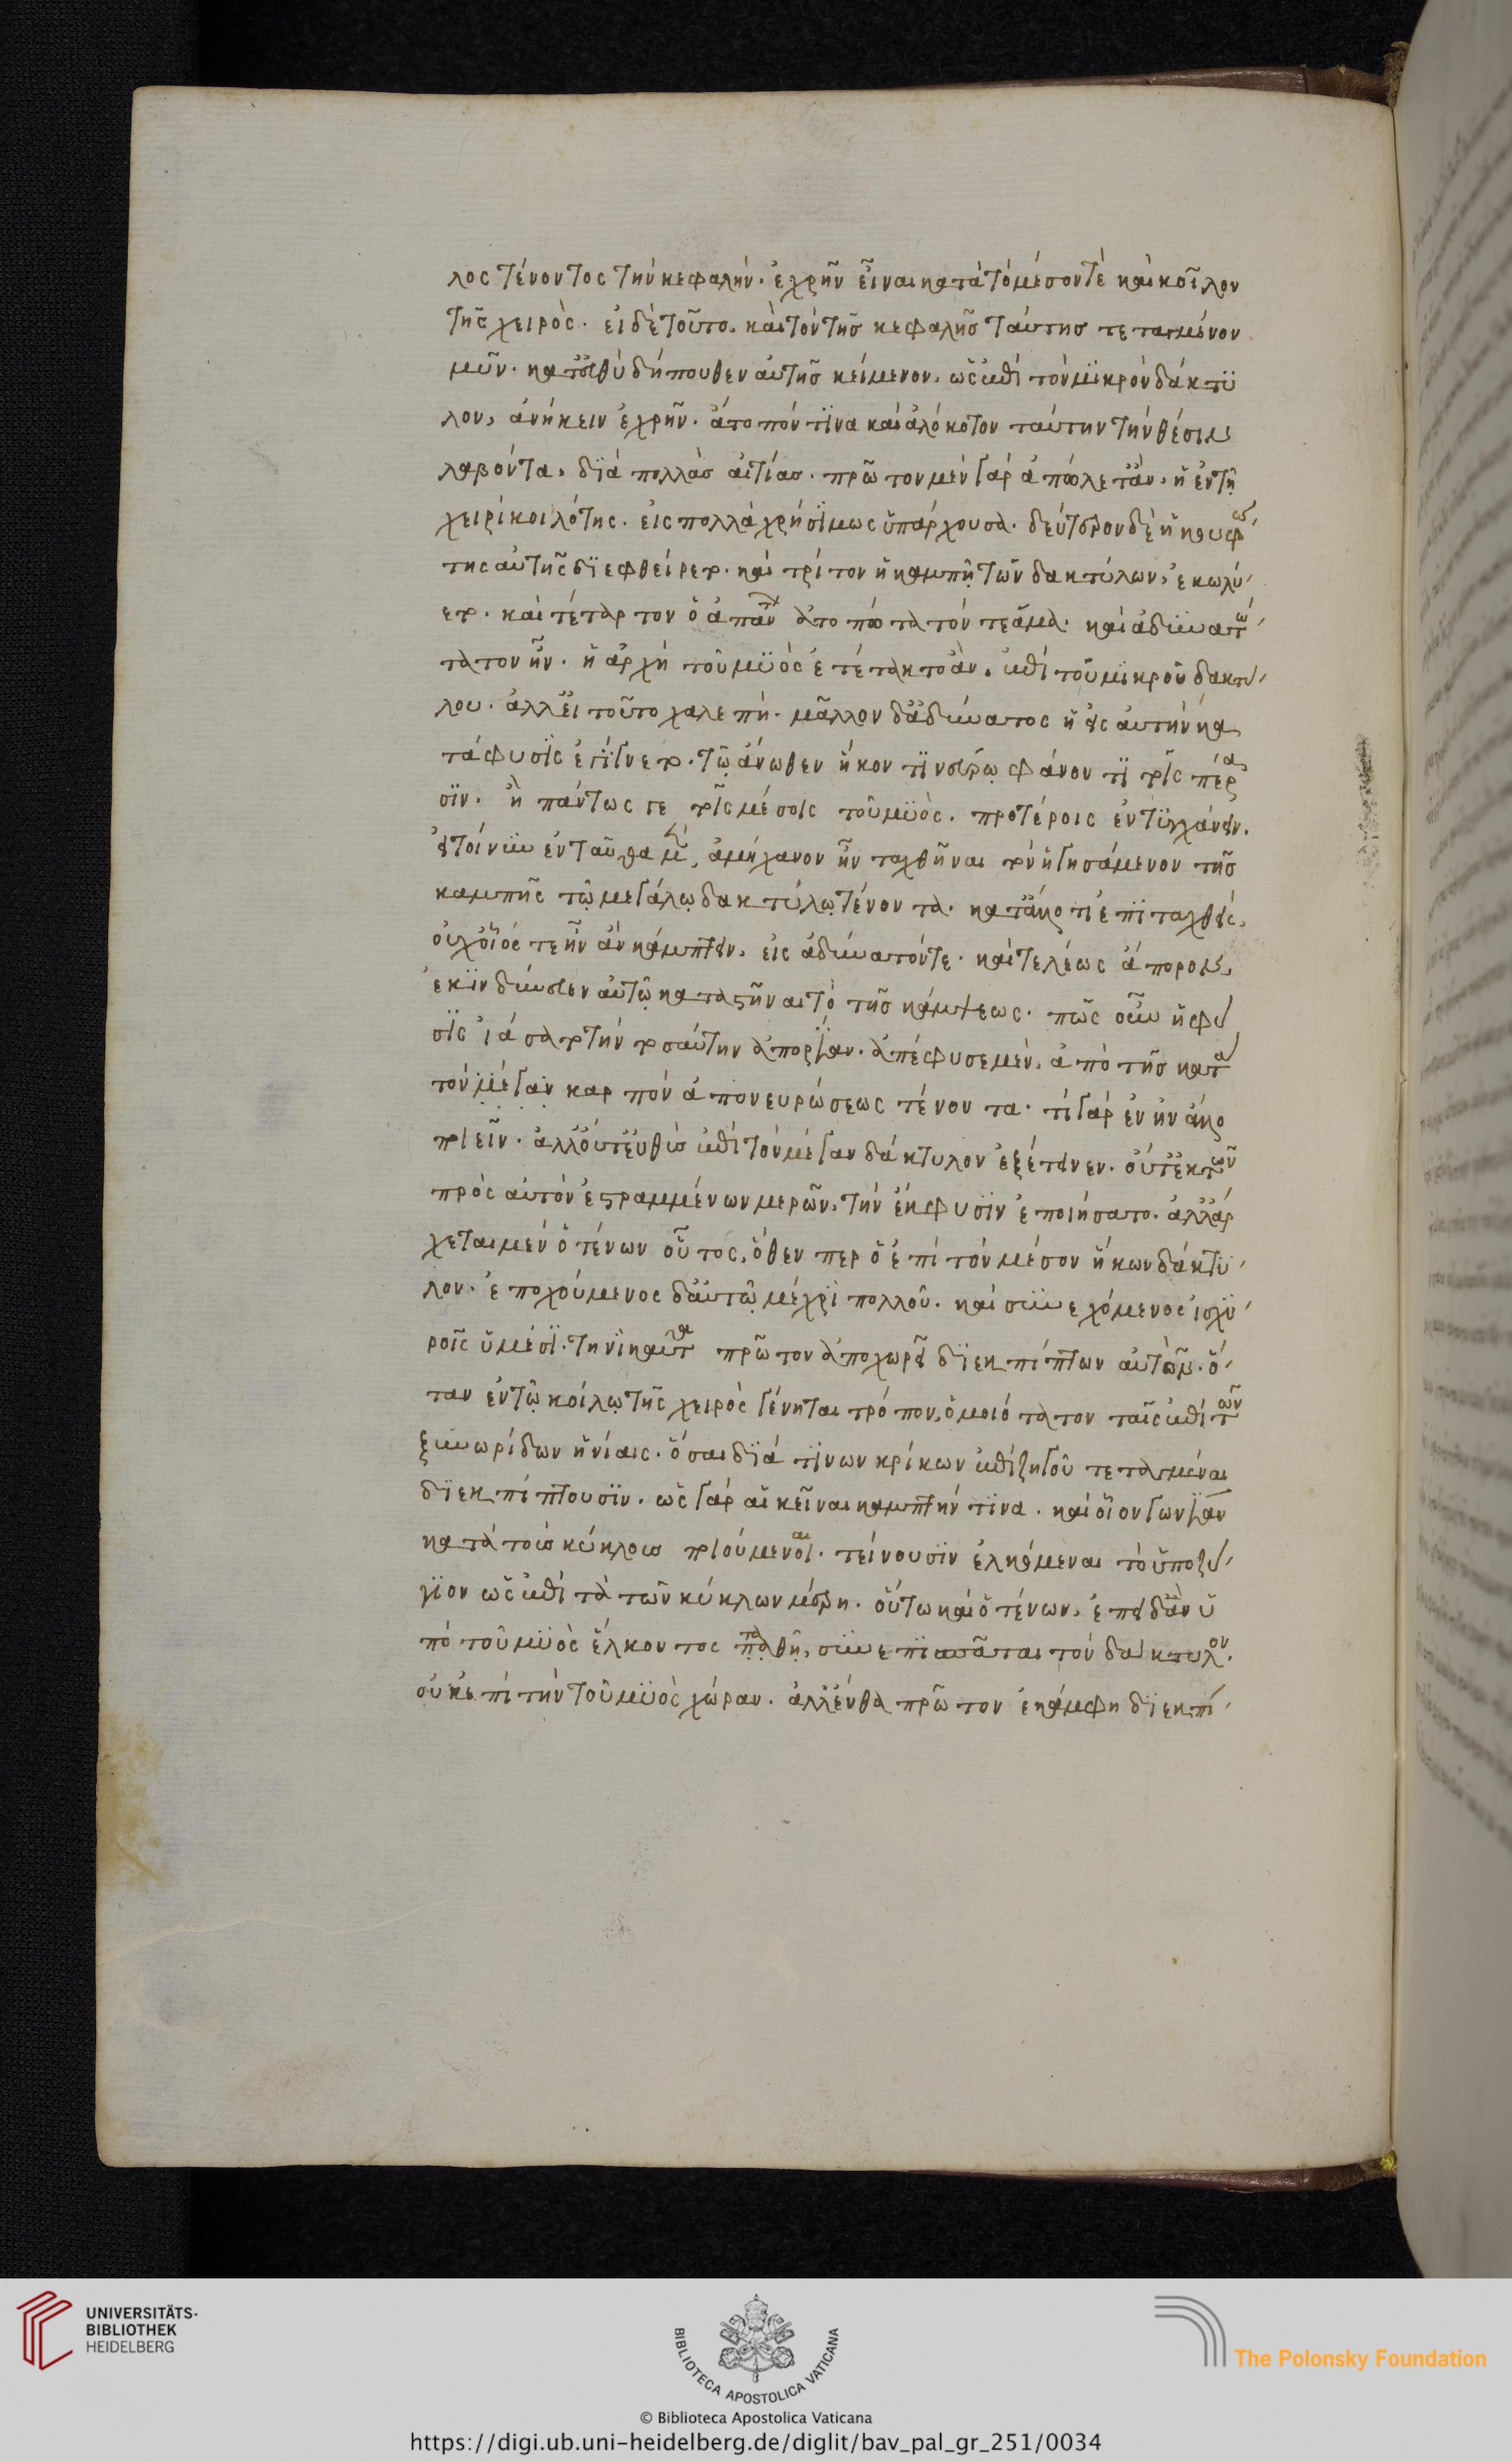 λος τένοντος τὴν κεφαλήν. ἐχρῆν εἶναι κατὰ τὸ μέσον τὲ καὶ κοῖλον
τῆς χειρὸς. εἰ δὲ τοῦτο, καὶ τὸν τῆς κεφαλῆς ταύτης τεταγμένον
μῦν. κατευθὺ δήπουθεν αὐτῆς κείμενον, ὡς ἐπὶ τὸν μικρὸν δάκτυ
λον, ἀνήκειν ἐχρῆν. ἄτοπόν τινα καὶ ἀλόκοτον ταύτην τὴν θέσιν
λαβόντα, διὰ πολλὰς αἰτίας. πρῶτον μὲν γὰρ ἀπώλετ' ἂν, ἡ ἐν τῇ
χειρὶ κοιλότης. εἰς πολλὰ χρησίμως ὑπάρχουσα. δεύτερον δὲ ἡ κουφό
της αὐτῆς διεφθείρετο. καὶ τρίτον ἡ καμπὴ τῶν δακτύλων, ἐκωλύ
ετο. καὶ τέταρτον ὃ ἁπάντων ἀτοπώτατόν τε ἅμα. καὶ ἀδυνατώ
τατον ἦν. ἡ ἀρχὴ τοῦ μυὸς ἐτέτακτο ἂν, ἐπὶ τοῦ μικροῦ δακτύ
λου. ἀλλ' εἰ τοῦτο χαλεπὴ. μᾶλλον δ' ἀδύνατος ἡ εἰς αὐτὴν κα
τάφυσις ἐγίγνετο. τῷ ἄνωθεν ἥκοντι νεύρῳ φάνον τι τοῖς πέρα
σιν. ἢ πάντως γε τοῖς μέσοις τοῦ μυὸς. προτέροις ἐντυγχάνειν.
εἰ τοίνυν ἐνταῦθα μὲν, ἀμήχανον ἦν ταχθῆναι τὸν ἡγησάμενον τῆς
καμπῆς τῷ μεγάλῳ δακτύλῳ τένοντα. κατ' ἄλλο τι ἐπιταχθεὶς,
οὐχ οἷός τε ἦν ἂν κάμπτειν, εἰς ἀδύνατόν τε. καὶ τελέως ἄπορον,
ἐκινδύνευεν αὐτῷ καταστῆναι τὸ τῆς κάμψεως. πῶς οὖν ἡ φύ
σις ἰάσατο τὴν τοσαύτην ἀπορίαν. ἀπέφυσε μὲν, ἀπὸ τῆς κατὰ
τὸν μέγαν καρπὸν ἀπονευρώσεως τένοντα. τί γὰρ ἐν ἦν ἄλλο
ποιεῖν. ἀλλ' οὔτ' εὐθὺς ἐπὶ τὸν μέγαν δάκτυλον ἐξέτεινεν. οὔτ' ἐκ τῶν
πρὸς αὐτὸν ἐστραμμένων μερῶν, τὴν ἔκφυσιν ἐποιήσατο. ἀλλ' ἄρ
χεται μὲν ὁ τένων οὗτος, ὅθεν περ ὁ ἐπὶ τὸν μέσον ἥκων δάκτυ
λον. ἐποχούμενος δ' αὐτῷ μέχρι πολλοῦ. καὶ συνεχόμενος ἰσχυ
ροῖς ὑμέσι. τηνικαῦτα πρῶτον ἀποχωρεῖ διεκπίπτων αὐτῶν. ὅ
ταν ἐν τῷ κοίλῳ τῆς χειρὸς γένηται τρόπον, ὁμοιότατον ταῖς ἐπὶ τῶν
ξυνωρίδων ἡνίαις. ὅσαι διά τινων κρίκων ἐπὶ ζηγοῦ τεταγμέναι
διεκπίπτουσιν. ὡς γὰρ αἱ κεῖναι καμπτήν τινα. καὶ οἷον γωνίαν
κατὰ τοὺς κύκλους ποιούμεναι. τείνουσιν ἑλκόμεναι τὸ ὑποζύ
γιον ὡς ἐπὶ τὰ τῶν κύκλων μέρη. οὕτω καὶ ὁ τένων, ἐπειδὰν ὑ
πὸ τοῦ μυὸς ἕλκοντος ταθῇ, συνεπισπᾶται τὸν δάκτυλον.
οὐκ ἐπὶ τὴν τοῦ μυὸς χώραν. ἀλλ' ἔνθα πρῶτον ἐκάμφη διεκπί
UNIVERSITÄTS-
BIBLIOTHEK
HEIDELBERG
BIBLIOTECA APOSTOLICA VATICANA
The Polonsky Foundation
© Biblioteca Apostolica Vaticana
https://digi.ub.uni-heidelberg.de/diglit/bav_pal_gr_251/0034